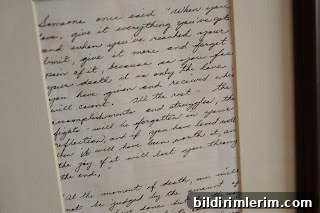 Someone once said "When you
love, give it everything you've got
and when you've reached your
limit, give it more and forget
pain of it, because as you face
your death it is only the love
you have given and received which
will count. All the rest - the
accomplishments and struggles, the
fights - will be forgotten in your
reflection, and if you have loved well
then it will have been worth it, and
the joy of it will last you through
the end.
"At the moment of death, we will
not be judged by the amount of
have done but
bildirimlerim.com